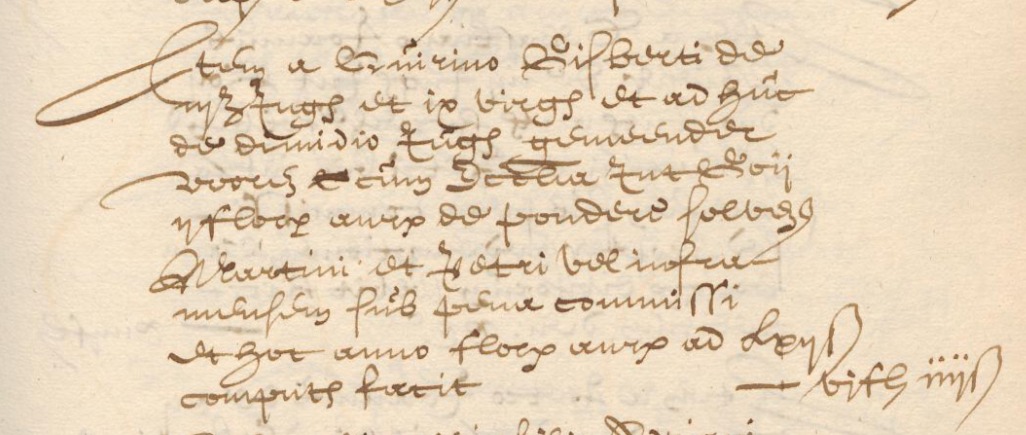 Item a Quirino Gisberti de
iij Jugs et ix virgs et ad huc
de dimidio Jugs gemeender
voorn cum Ecclia Jut Goij
ij florx aurx de pondere solvens
Martini et Petri vel infra
mensem sub pena commissi
et hoc anno florx aurx ad lxijß
computs facit — vjfl iiijß